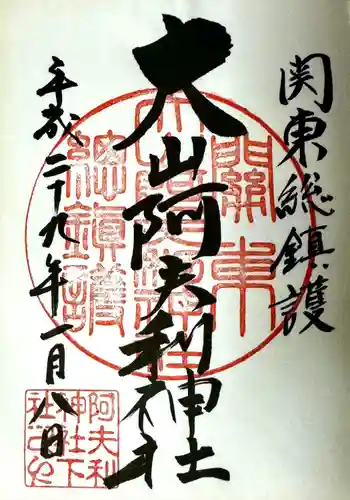 関東総鎮護
大山阿夫利神社
平成二十九年一月八日
關東
總鎮護
阿夫利
神社下
社